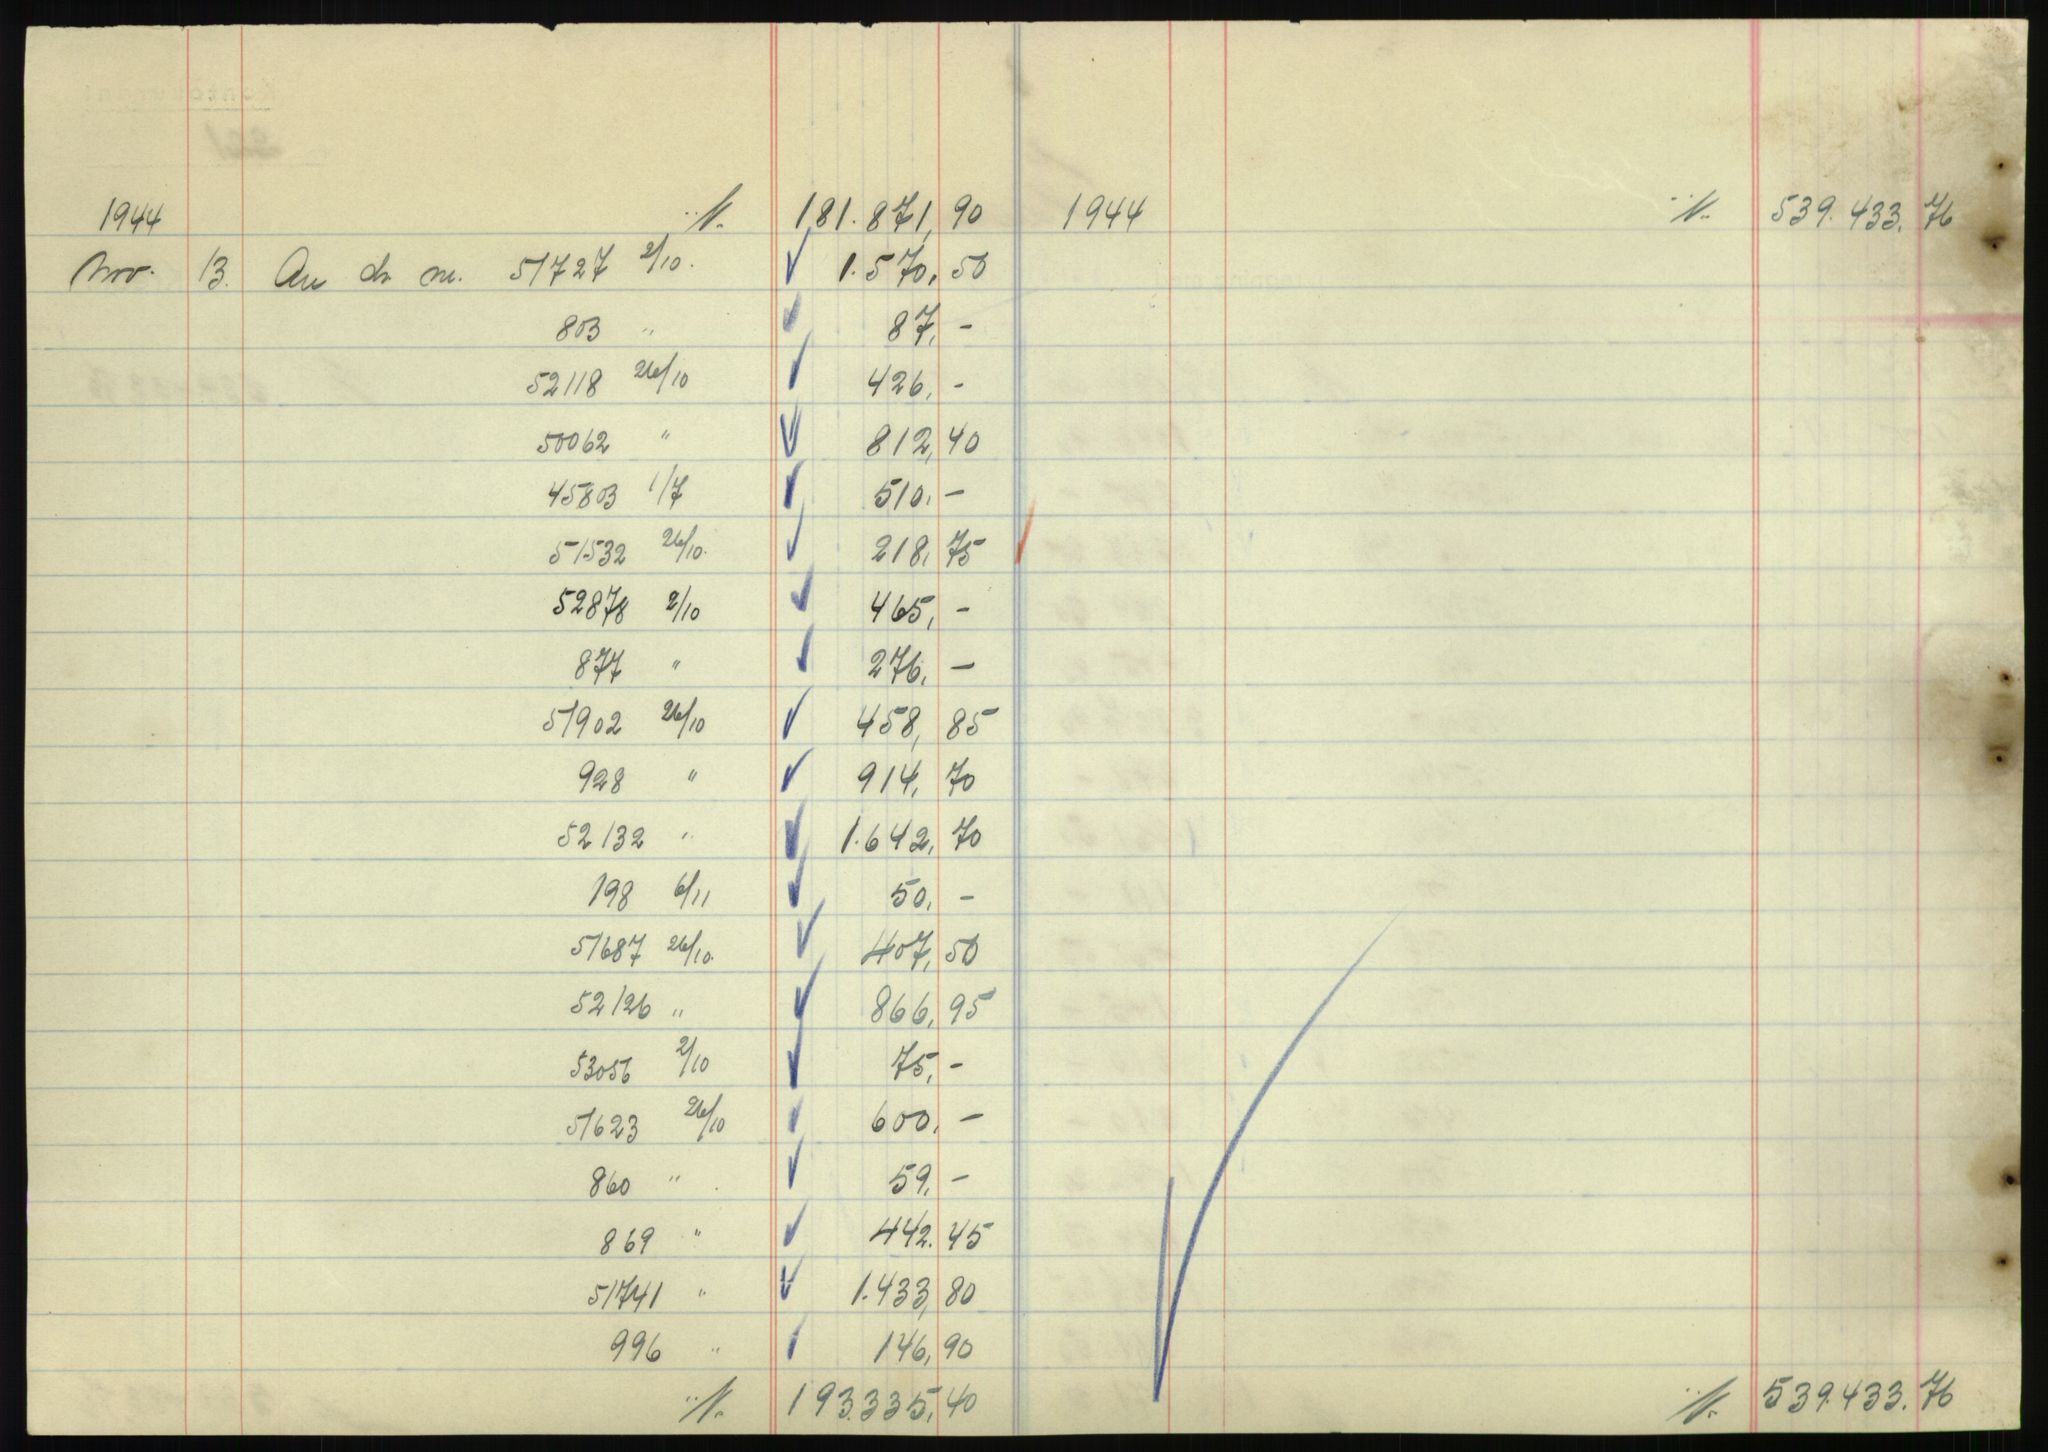 1944 ·/· 181.871,90 1944 ·/· 539.433.76
Nov. 13. An ch nr. 51727 2/10. 1.570,50
803 " 87,-
52118 26/10 426,-
50062 " 812,40
45803 1/7 510,-
51532 26/10. 218,75
52878 2/10 465,-
877 " 276,-
51902 26/10 458,85
928 " 914,70
52132 " 1.642,70
198 6/11 50,-
51687 26/10. 407,50
52126 " 866,95
53056 2/10 75,-
51623 26/10 600,-
860 " 59,-
869 " 442.45
51741 " 1.433,80
996 " 146,90
·/· 193.335,40 ·/· 539.433.76